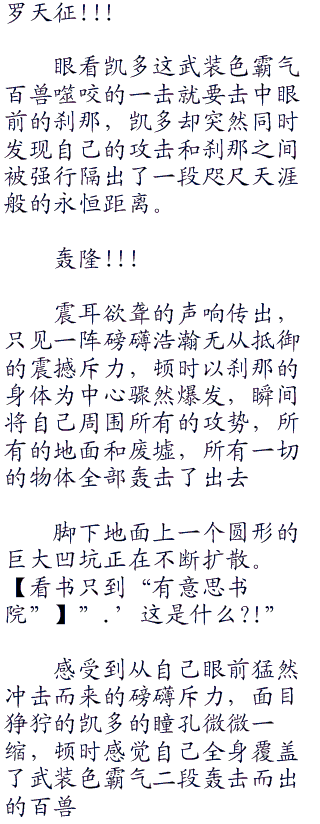 罗天征!!!
眼看凯多这武装色霸气
百兽噬咬的一击就要击中眼
前的刹那，凯多却突然同时
发现自己的攻击和刹那之间
被强行隔出了一段咫尺天涯
般的永恒距离。
轰隆!!!
震耳欲聋的声响传出，
只见一阵磅礴浩瀚无从抵御
的震撼斥力，顷时以刹那的
身体为中心骤然爆发，瞬间
将自己周围所有的攻势，所
有的地面和废墟，所有一切
的物体全部轰击了出去
脚下地面上一个圆形的
巨大凹坑正在不断扩散。
【看书只到“有意思书
院”】”.’这是什么?!”
感受到从自己眼前猛然
冲击而来的磅礴斥力，面目
狰狞的凯多的瞳孔微微一
缩，顿时感觉自己全身覆盖
了武装色霸气二段轰击而出
的百兽